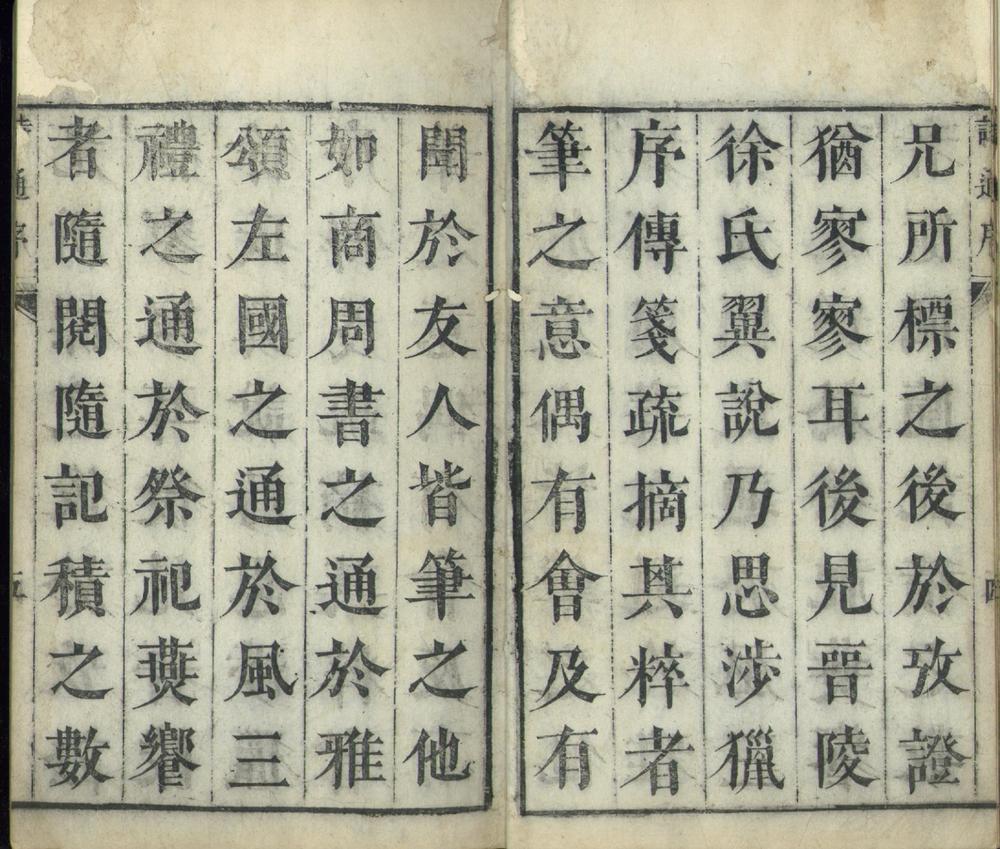 兄所標之後於攷證
猶寥寥耳後見晉陵
徐氏翼說乃思涉獵
序傳箋疏摘其粹者
筆之意偶有會及有
聞於友人皆筆之他
如商周書之通於雅
頌左國之通於風三
禮之通於祭祀燕饗
者隨閱隨記積之數
通序
五